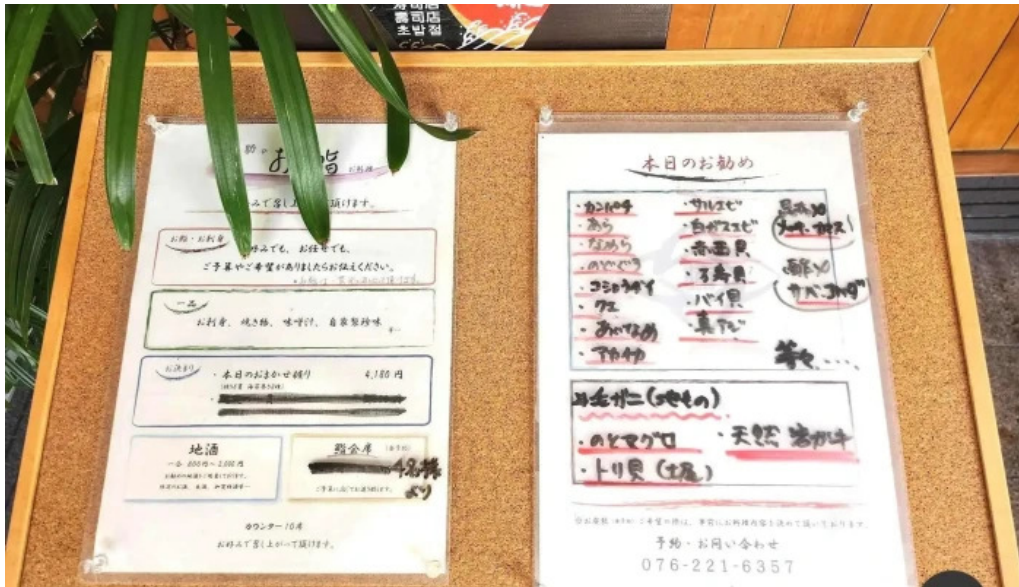 寿司店
壽司店
초밥점
お料理
お鮨・お刺身
お好みでも、お任せでも、
ご予算やご希望がありましたらお伝えください。
一品
お刺身、焼き物、味噌汁、自家製珍味
お決まり
・本日のおまかせ握り 4,180円
地酒
一合 800円～2,000円
鮨会席
4名様
より
カウンター10席
お好みで召し上がって頂けます。
本日のお勧め
・カンパチ
・あら
・なめら
・のどぐろ
・コショウダイ
・クエ
・あいなめ
・アカイカ
・サルエビ
・白ガスエビ
・赤西貝
・万寿貝
・バイ貝
・真アジ
酢〆
サバ・コハダ
等々...
毛ガニ(地もの)
・のとマグロ
・天然岩ガキ
・トリ貝
予約・お問い合わせ
076-221-6357